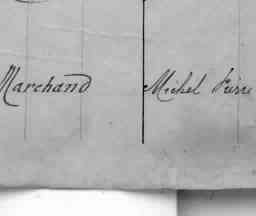 Marchand Michel Pierre